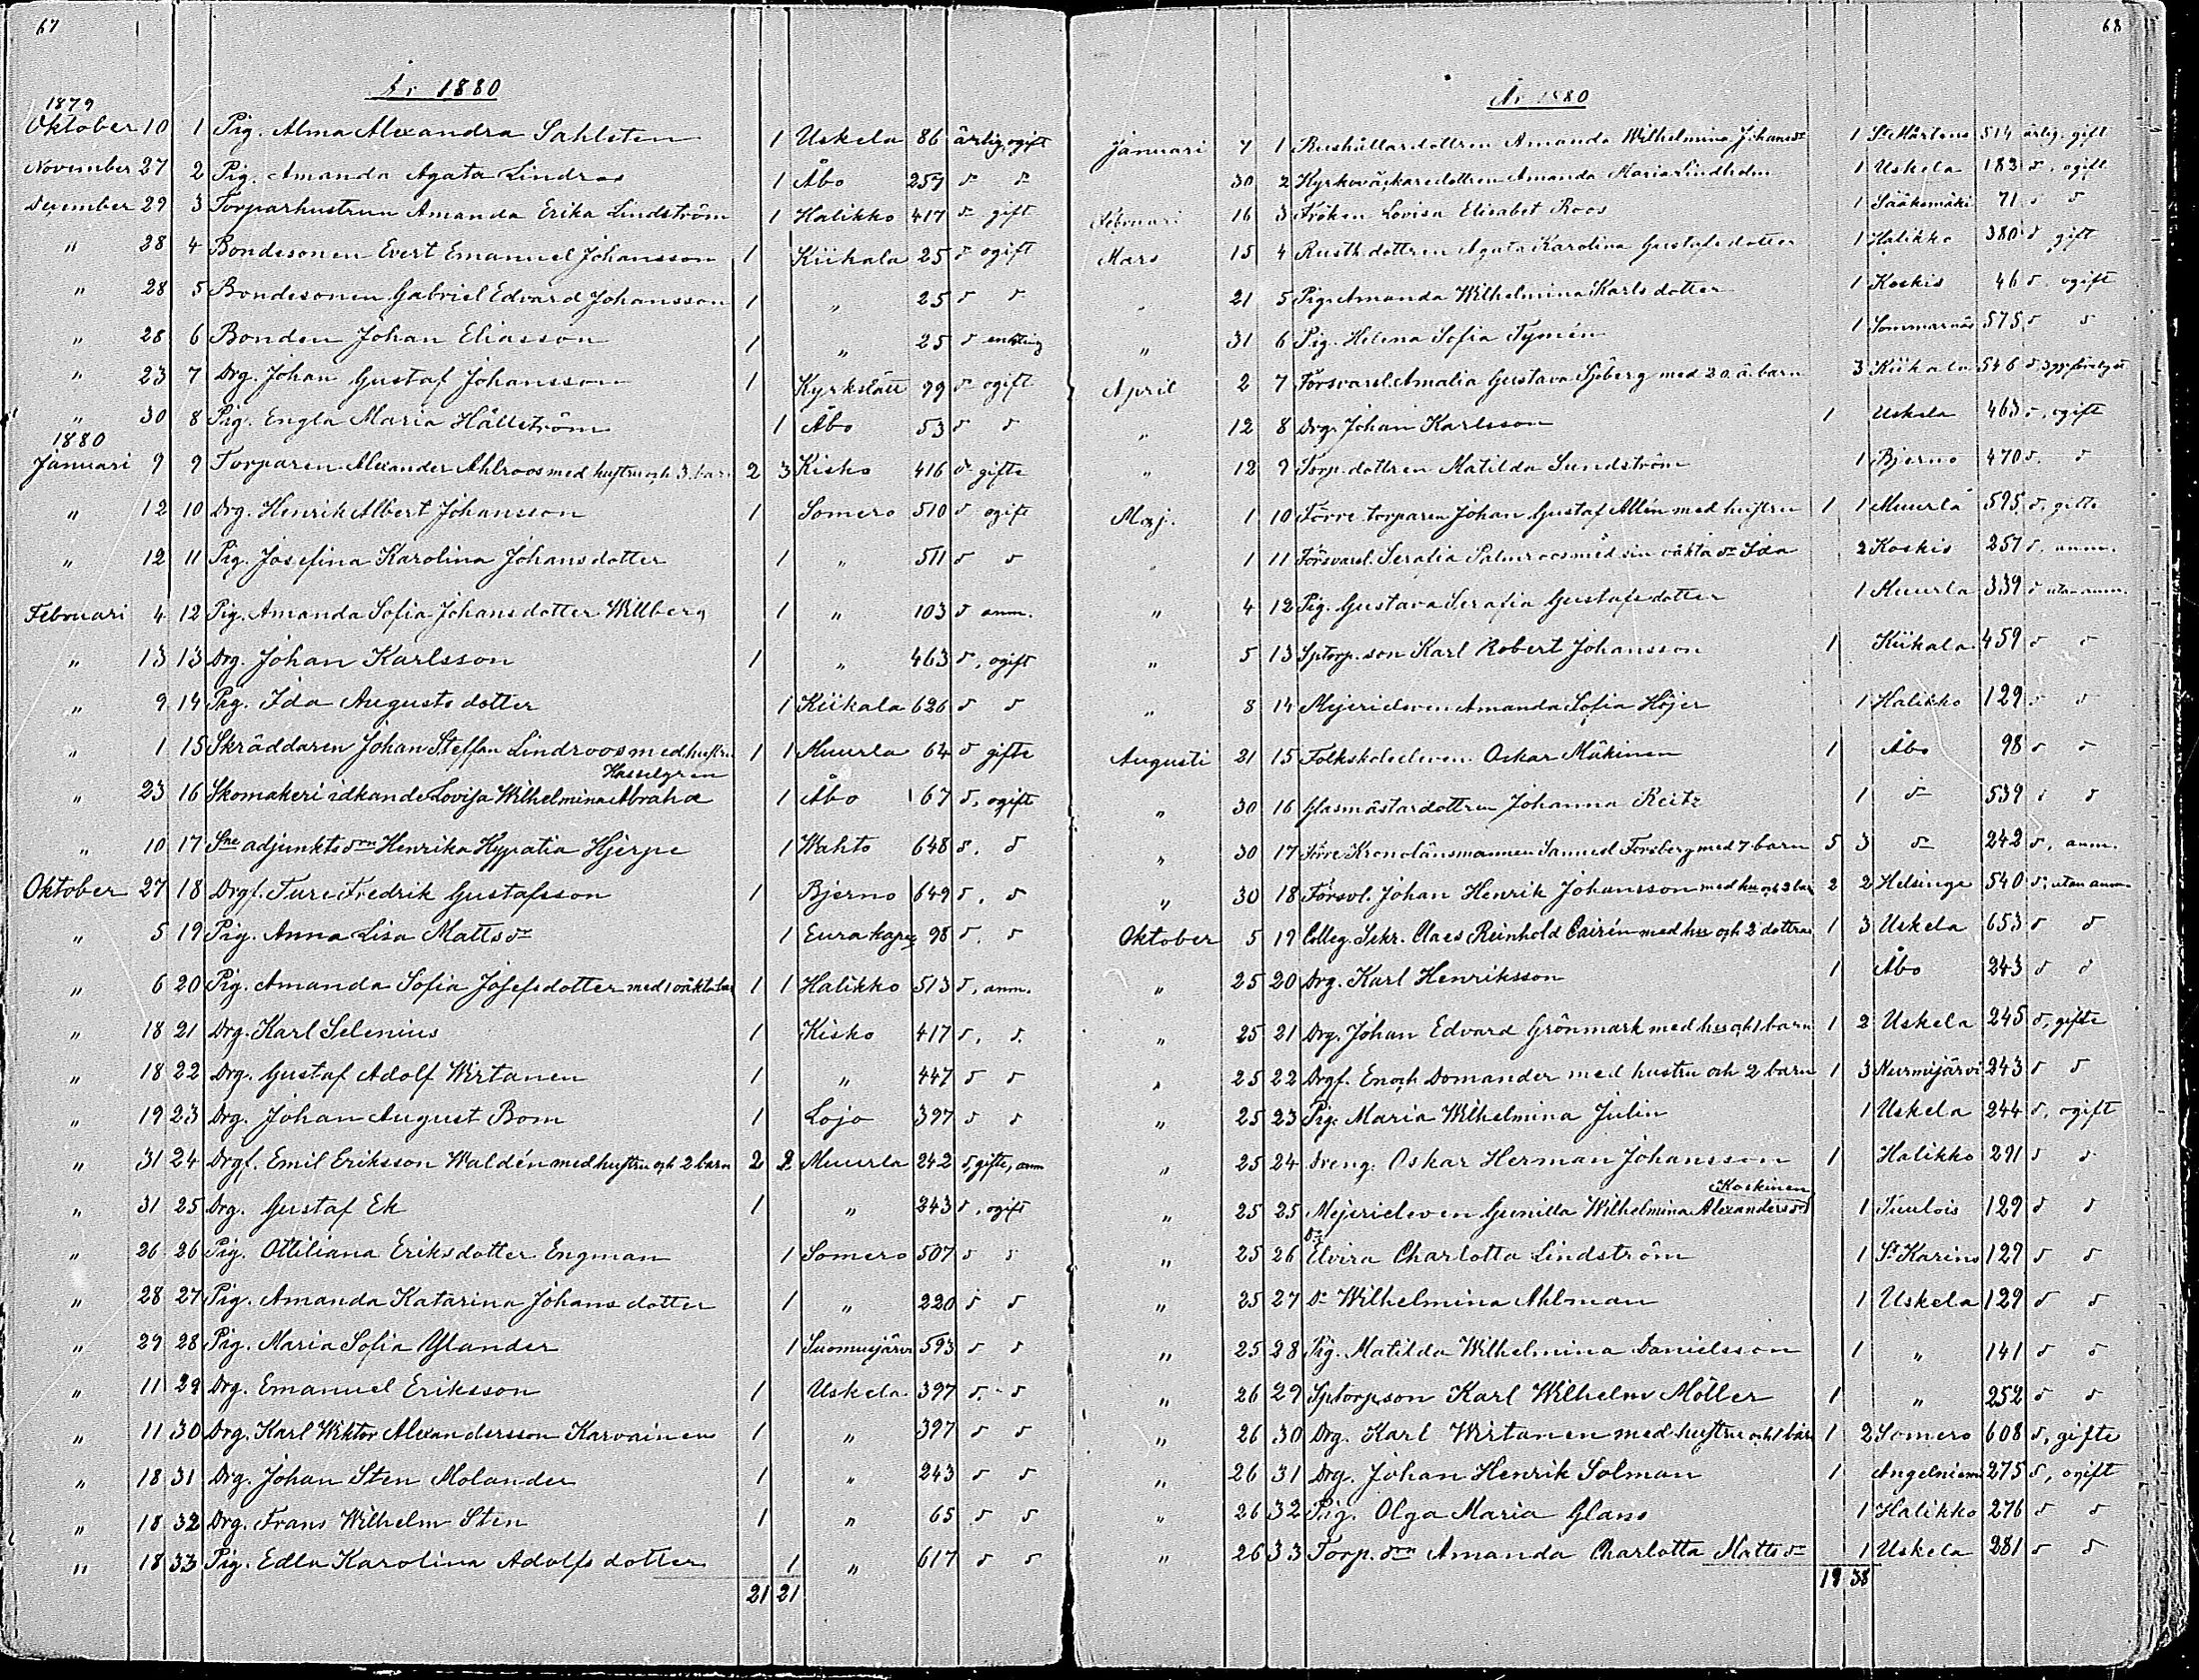 67
År 1880
1879
Oktober 10 1 Pig. Alma Alexandra Sahlsten 1 Uskela 86 ärlig, ogift
November 27 2 Pig. Amanda Agata Lindros 1 Åbo 259 d:o d:o
December 29 3 Torparhustrun Amanda Erika Lindström 1 Halikko 417 d:o gift
" 28 4 Bondesonen Evert Emanuel Johansson 1 Kiikala 25 d:o ogift
" 28 5 Bondesonen Gabriel Edvard Johansson 1 " 25 d:o d:o
" 28 6 Bonden Johan Eliasson 1 " 25 d:o enkling
" 23 7 Drg. Johan Gustaf Johansson 1 Kyrkslätt 99 d:o ogift
" 30 8 Pig. Engla Maria Hällström 1 Åbo 53 d:o d:o
1880
Januari 9 9 Torparen Alexander Ahlroos med hustru och 3 barn 2 3 Kisko 416 d:o gifte
" 12 10 Drg. Henrik Albert Johansson 1 Somero 510 d:o ogift
" 12 11 Pig. Josefina Karolina Johansdotter 1 " 511 d:o d:o
Februari 4 12 Pig. Amanda Sofia Johansdotter Willberg 1 " 103 d:o anm.
" 13 13 Drg. Johan Karlsson 1 " 463 d:o, ogift
" 9 14 Pig. Ida Augusts dotter 1 Kiikala 626 d:o d:o
" 1 15 Skräddaren Johan Steffan Lindroos med hustru 1 1 Muurla 64 d:o gifte
Hasselgren
" 23 16 Skomakeri idkande Lovisa Wilhelmina Abrah d:r 1 Åbo 67 d:o, ogift
" 10 17 Sne adjunkts d:rn Henrika Hypatia Hjerpe 1 Wahto 648 d:o, d:o
Oktober 27 18 Drgf. Ture Fredrik Gustafsson 1 Bjerno 649 d:o, d:o
" 5 19 Pig. Anna Lisa Matts d:r 1 Eura kapel 98 d:o, d:o
" 6 20 Pig. Amanda Sofia Josefsdotter med 1 oäkta barn 1 1 Halikko 513 d:o, anm.
" 18 21 Drg. Karl Selenius 1 Kisko 417 d:o, d:o
" 18 22 Drg. Gustaf Adolf Wirtanen 1 " 447 d:o d:o
" 19 23 Drg. Johan August Bom 1 Lojo 397 d:o d:o
" 31 24 Drgf. Emil Eriksson Waldén med hustru och 2 barn 2 2 Muurla 242 d:o, gifte, anm
" 31 25 Drg. Gustaf Ek 1 " 243 d:o, ogift
" 26 26 Pig. Ottiliana Eriksdotter Engman 1 Somero 507 d:o d:o
" 28 27 Pig. Amanda Katarina Johans dotter 1 " 220 d:o d:o
" 29 28 Pig. Maria Sofia Ylander 1 Suomusjärvi 593 d:o d:o
" 11 29 Drg. Emanuel Eriksson 1 Uskela 397 d:o, d:o
" 11 30 Drg. Karl Wiktor Alexandersson Karvainen 1 " 397 d:o d:o
" 18 31 Drg. Johan Sten Molander 1 " 243 d:o d:o
" 18 32 Drg. Frans Wilhelm Sten 1 " 65 d:o d:o
" 18 33 Pig. Edla Karolina Adolfs dotter 1 " 617 d:o d:o
21 21
68
År 1880
Januari 7 1 Rusthållardottren Amanda Wilhelmina Johansd:r 1 St Mårtens 514 ärlig, gift
30 2 Kyrkoväktaredottren Amanda Maria Lindholm 1 Uskela 183 d:o, ogift
Februari 16 3 Fröken Lovisa Elisabet Roos 1 Sääksmäki 71 d:o d:o
Mars 15 4 Rusth. dottren Agata Karolina Gustafsdotter 1 Halikko 380 d:o gift
" 21 5 Pig. Amanda Wilhelmina Karlsdotter 1 Koskis 46 d:o ogift
" 31 6 Pig. Helena Sofia Tymén 1 Sommarnäs 575 d:o d:o
April 2 7 Försvarsl. Amalia Gustava Sjöberg med 2 o.ä. barn 3 Kiikala 546 d:o
" 12 8 Drg. Johan Karlsson 1 Uskela 463 d:o, ogift
" 12 9 Torp. dottren Matilda Sundström 1 Bjerno 470 d:o d:o
Maj. 1 10 Förre torparen Johan Gustaf Allén med hustru 1 1 Muurla 595 d:o, gifte
" 1 11 Försvarsl. Seralia Palmroos med sin oäkta d:r Ida 2 Koskis 257 d:o, anm.
" 4 12 Pig. Gustava Serafia Gustafsdotter 1 Muurla 339 d:o utan anm.
" 5 13 Sptorp. son Karl Robert Johansson 1 Kiikala 459 d:o d:o
" 8 14 Mejerieleven Amanda Sofia Höjer 1 Halikko 129 d:o d:o
Augusti 21 15 Folkskoleeleven Oskar Mäkinen 1 Åbo 98 d:o d:o
" 30 16 Glasmästardottren Johanna Reitz 1 d:o 539 d:o d:o
" 30 17 Förre Kronolänsmannen Samuel Forsberg med 7 barn 5 3 d:o 242 d:o, anm.
" 30 18 Försvl. Johan Henrik Johansson med hu och 2 bar 2 2 Helsinge 540 d:o, utan anm
Oktober 5 19 Colleg. Sekr. Claes Reinhold Cairén med hu och 2 dottrar 1 3 Uskela 653 d:o d:o
" 25 20 Drg. Karl Henriksson 1 Åbo 243 d:o d:o
" 25 21 Drg. Johan Edvard Grönmark med hu och 1 barn 1 2 Uskela 245 d:o, gifte
" 25 22 Drgf. Enoch Domander med hustru och 2 barn 1 3 Nurmijärvi 243 d:o d:o
" 25 23 Pig. Maria Wilhelmina Julin 1 Uskela 244 d:o, ogift
" 25 24 Dreng. Oskar Herman Johansson 1 Halikko 291 d:o d:o
Koskinen
" 25 25 Mejerieleven Gunilla Wilhelmina Alexandersd:r 1 Tuulois 129 d:o d:o
" 25 26 D:o Elvira Charlotta Lindström 1 S:t Karins 129 d:o d:o
" 25 27 D:o Wilhelmina Ahlman 1 Uskela 129 d:o d:o
" 25 28 Pig. Matilda Wilhelmina Danielsson 1 " 141 d:o d:o
" 26 29 Sptorpson Karl Wilhelm Möller 1 " 252 d:o d:o
" 26 30 Drg. Karl Wirtanen med hustru och 1 bar 1 2 Somero 608 d:o, gifte
" 26 31 Drg. Johan Henrik Solman 1 Angelniemi 275 d:o, ogift
" 26 32 Pig. Olga Maria Glans 1 Halikko 276 d:o d:o
" 26 33 Torp. d:rn Amanda Charlotta Matts d:r 1 Uskela 281 d:o d:o
19 38